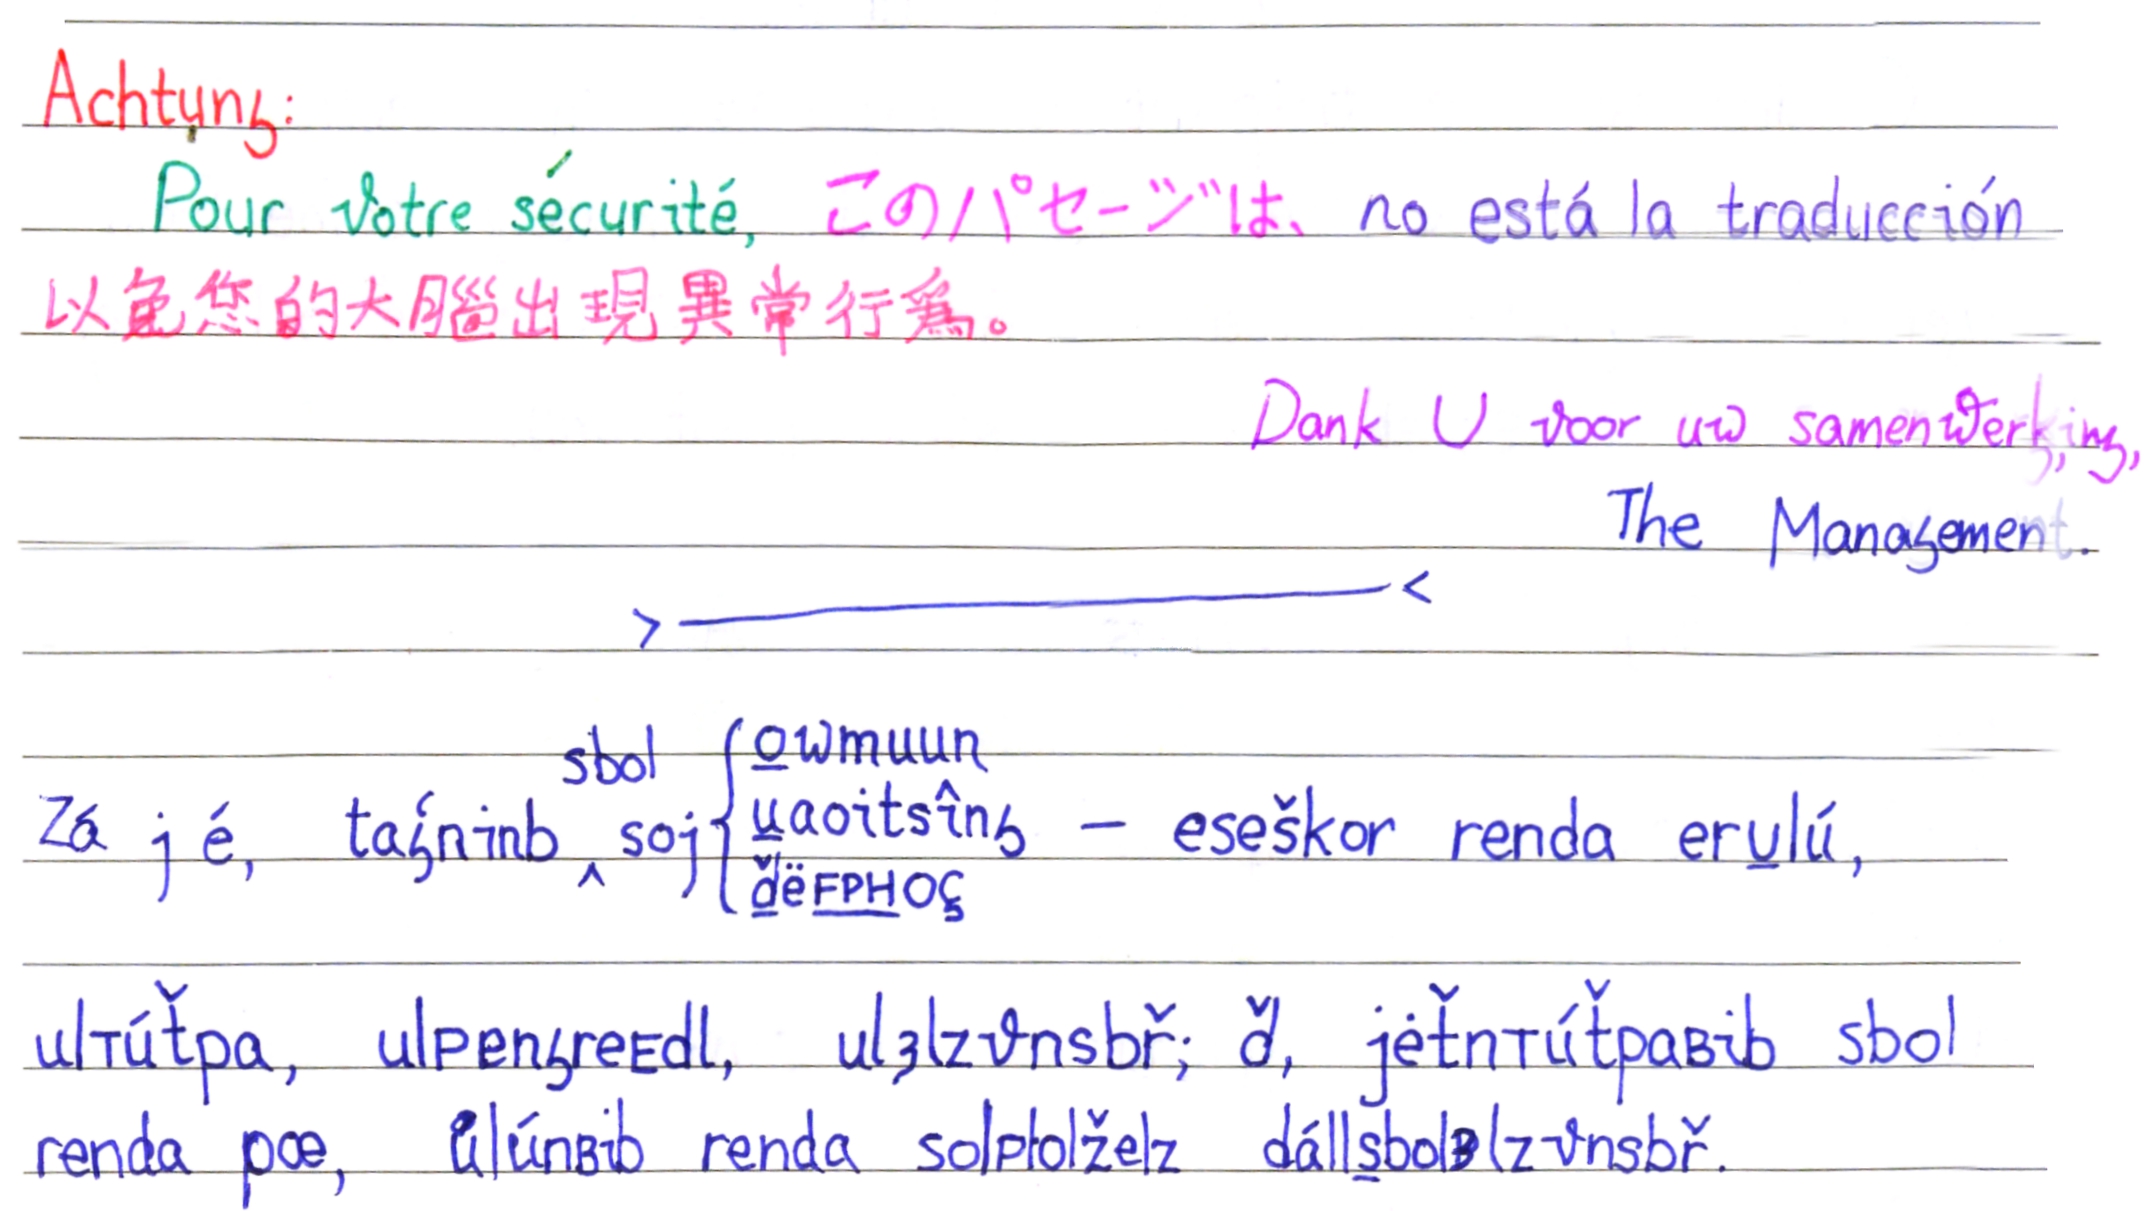 Achtung:
Pour votre sécurité, このパセージは、 no está la traducción
以免您的大腦出現異常行爲。
Dank U voor uw samenwerking,
The Management.
> < 
sbol owmuun
Zá j é, taǵninb ^ soj { u̲aoitsîng – eseškor renda eru̲lú,
ď̲ëF̲P̲H̲OÇ
ulTútˇpa, ulPEngreEdl, ulʒlzvnsbř; ď, jėtˇnTútˇpaBib sbol
renda pœ, ůlúnBib renda solptolželz dálls̲bolBlzvnsbř.